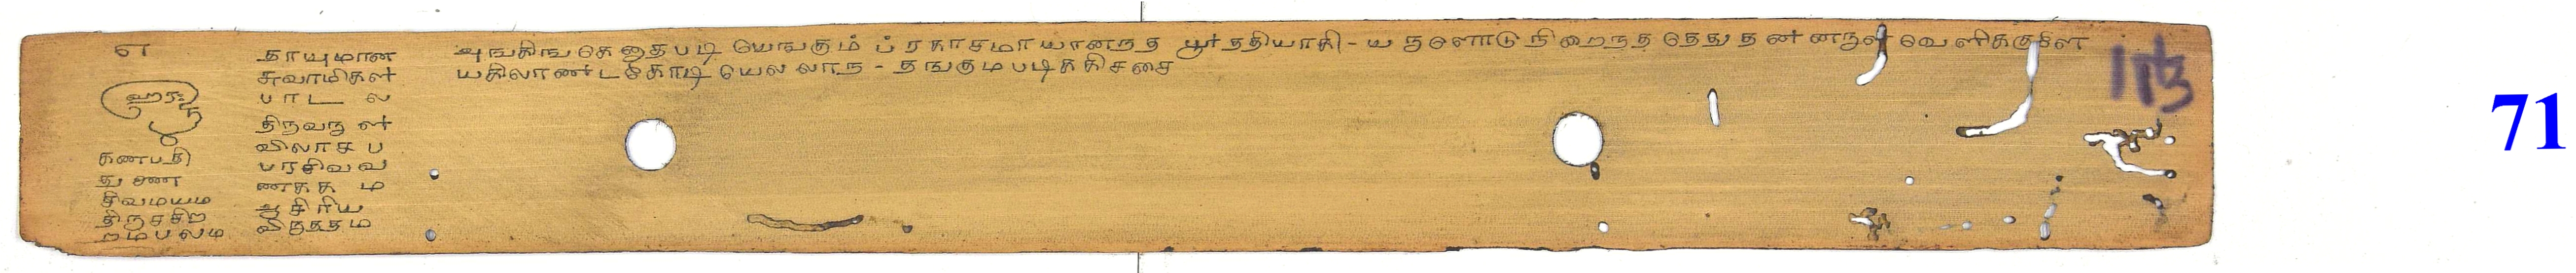 எ
ஹரு
கணபதி
துணை
சிவமயம
திருசசிற
றமபலம
தாயுமான
சுவாமிகள்
பாடல
திருவருள்
விலாசப
பரசிவவ
ணகக ம
ஆசிரிய
விருததம
அஙகிஙகெனுதபடி யெஙகும் ப்ரகாசமாயானநத பூர்ததியாகி - யருளொடு நிறைநத தேது தன்னருள் வெளிககுளெ
யகிலாண்டகோடி யெலலாந - தஙகுமபடிககிசசை
113
71